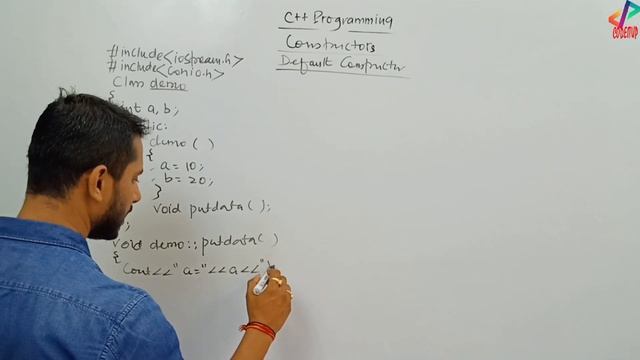 C++ Programming
Constructors
Default Constructor
CODENUP
#include<iostream.h>
#include<conio.h>
Class demo
{
int a, b;
lic:
demo( )
{
a=10;
b=20;
}
void putdata( );
};
void demo::putdata( )
{
Cout<<"a="<<a<<"